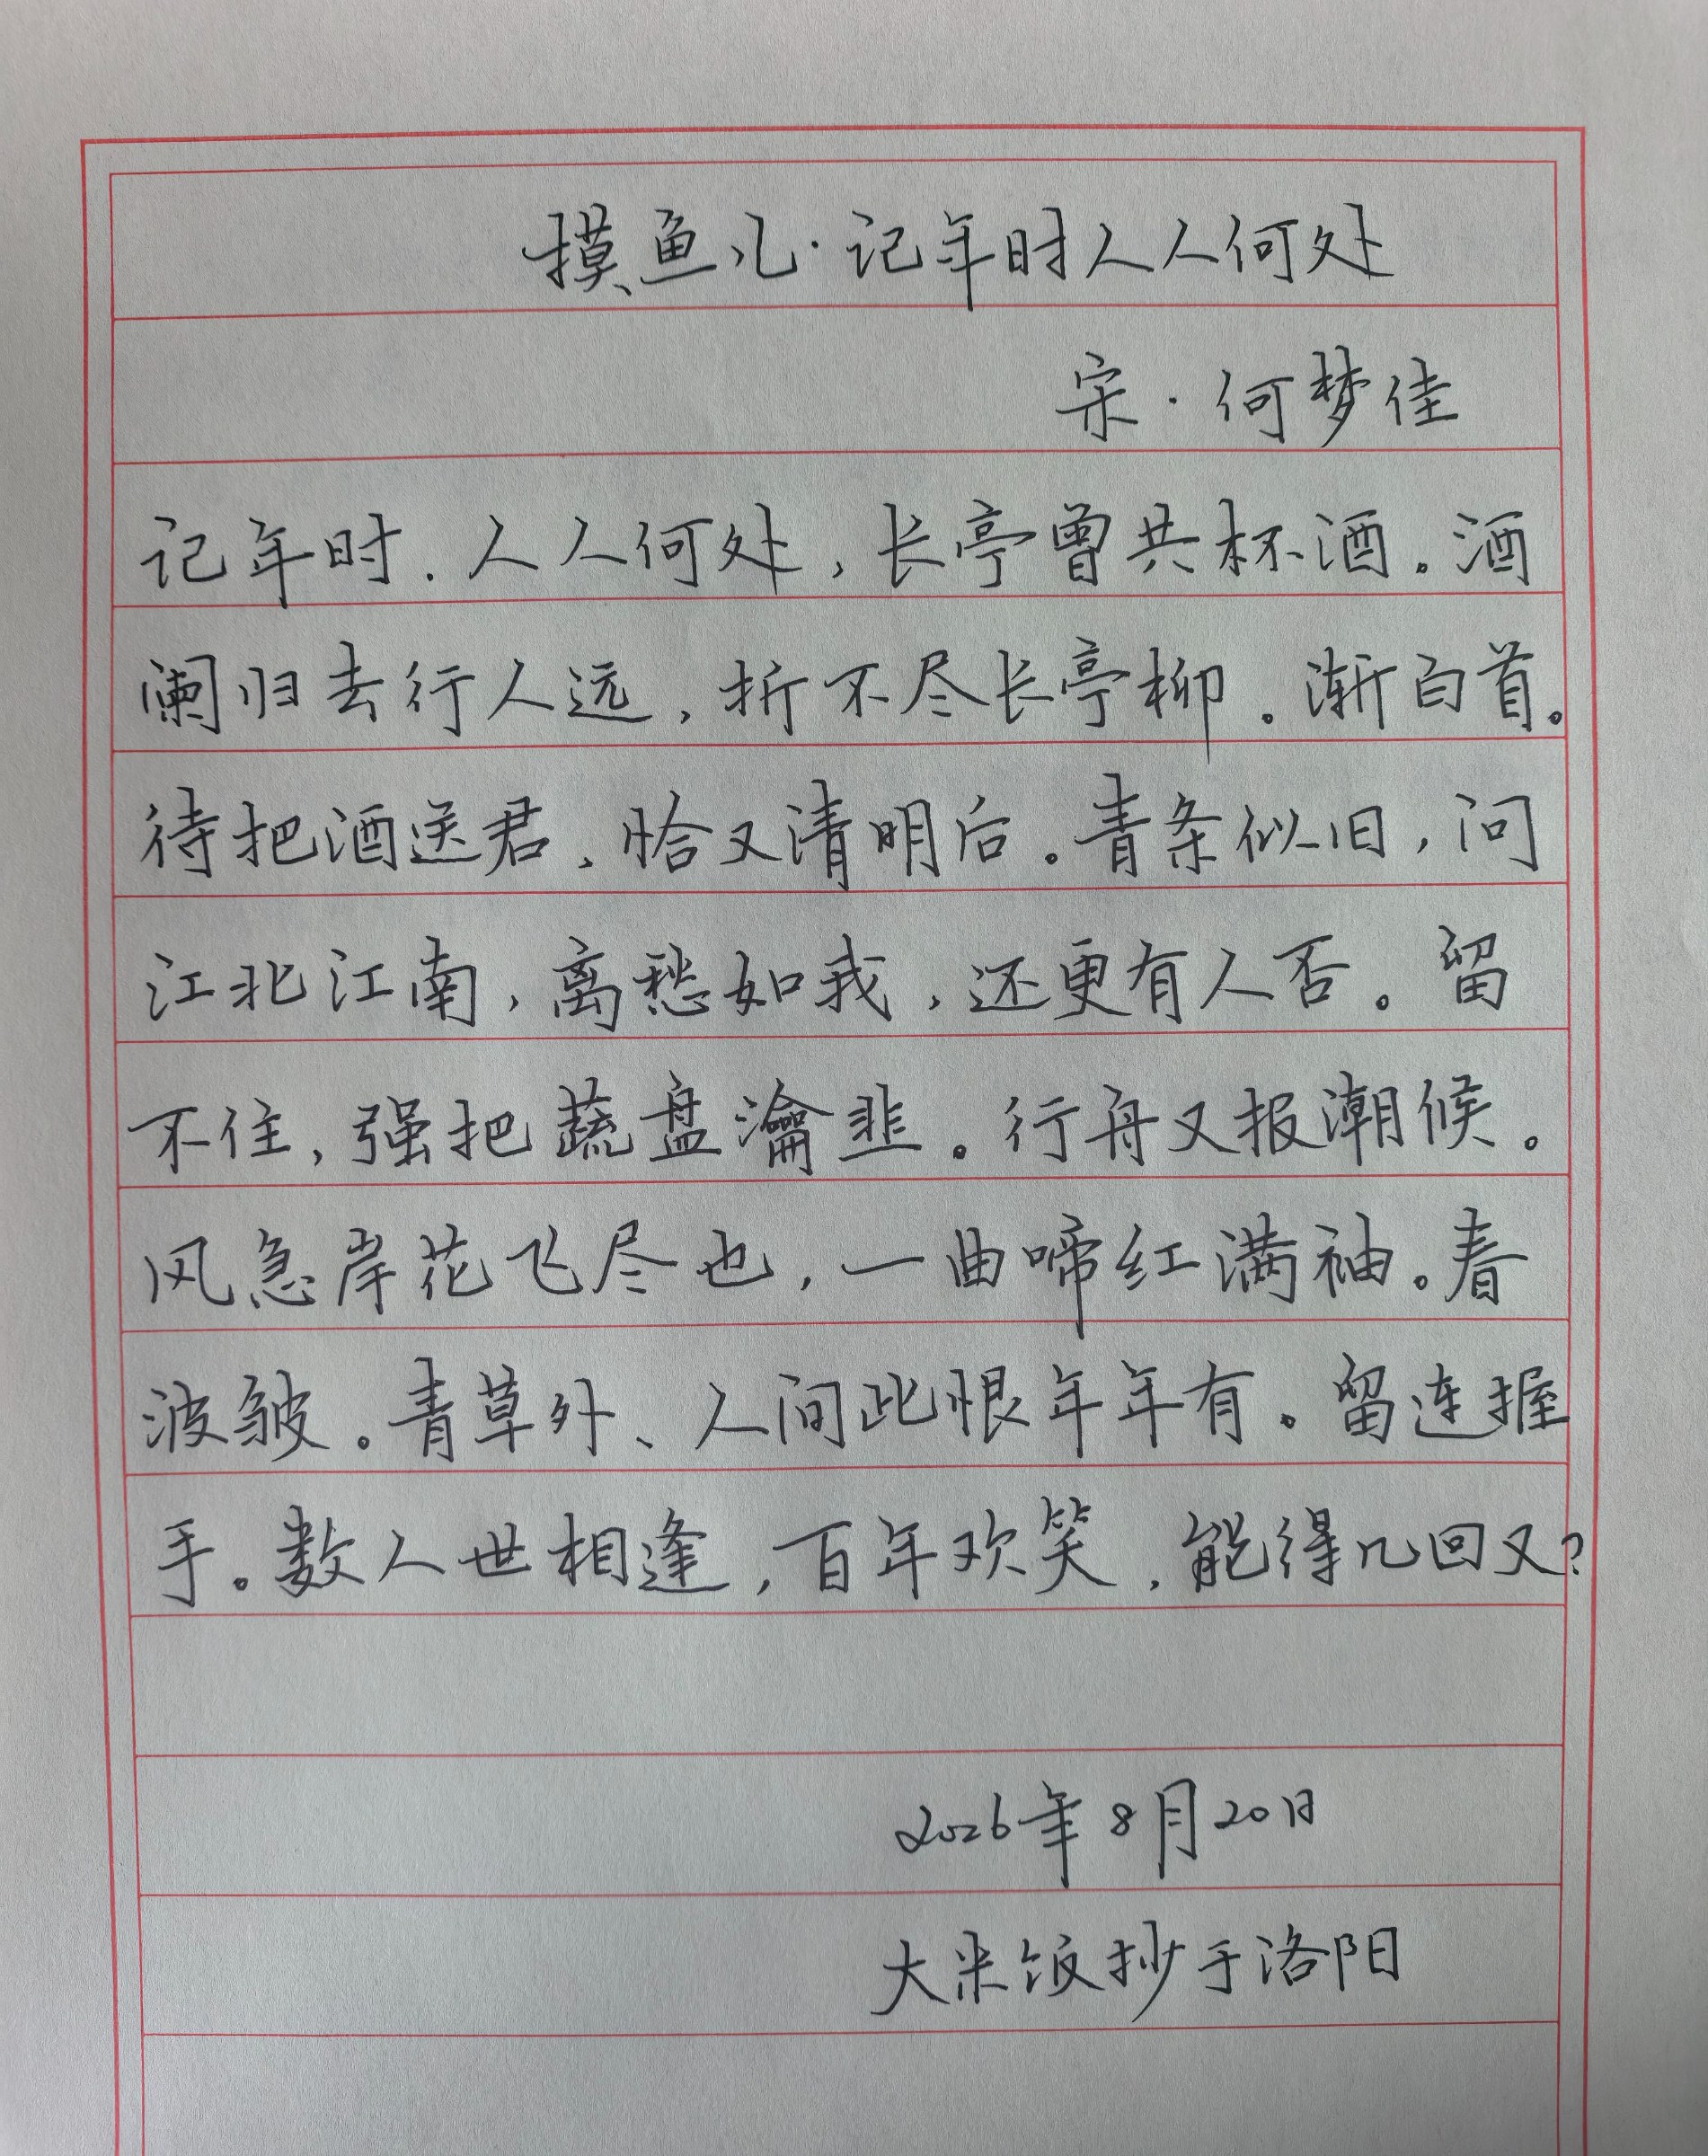 摸鱼儿·记年时人人何处
宋·何梦佳
记年时、人人何处，长亭曾共杯酒。酒
阑归去行人远，折不尽长亭柳。渐白首。
待把酒送君，恰又清明后。青条似旧，问
江北江南，离愁如我，还更有人否。留
不住，强把蔬盘瀹韭。行舟又报潮候。
风急岸花飞尽也，一曲啼红满袖。春
波皱。青草外、人间此恨年年有。留连握
手。数人世相逢，百年欢笑，能得几回又？
2026年8月20日
大米饭抄于洛阳